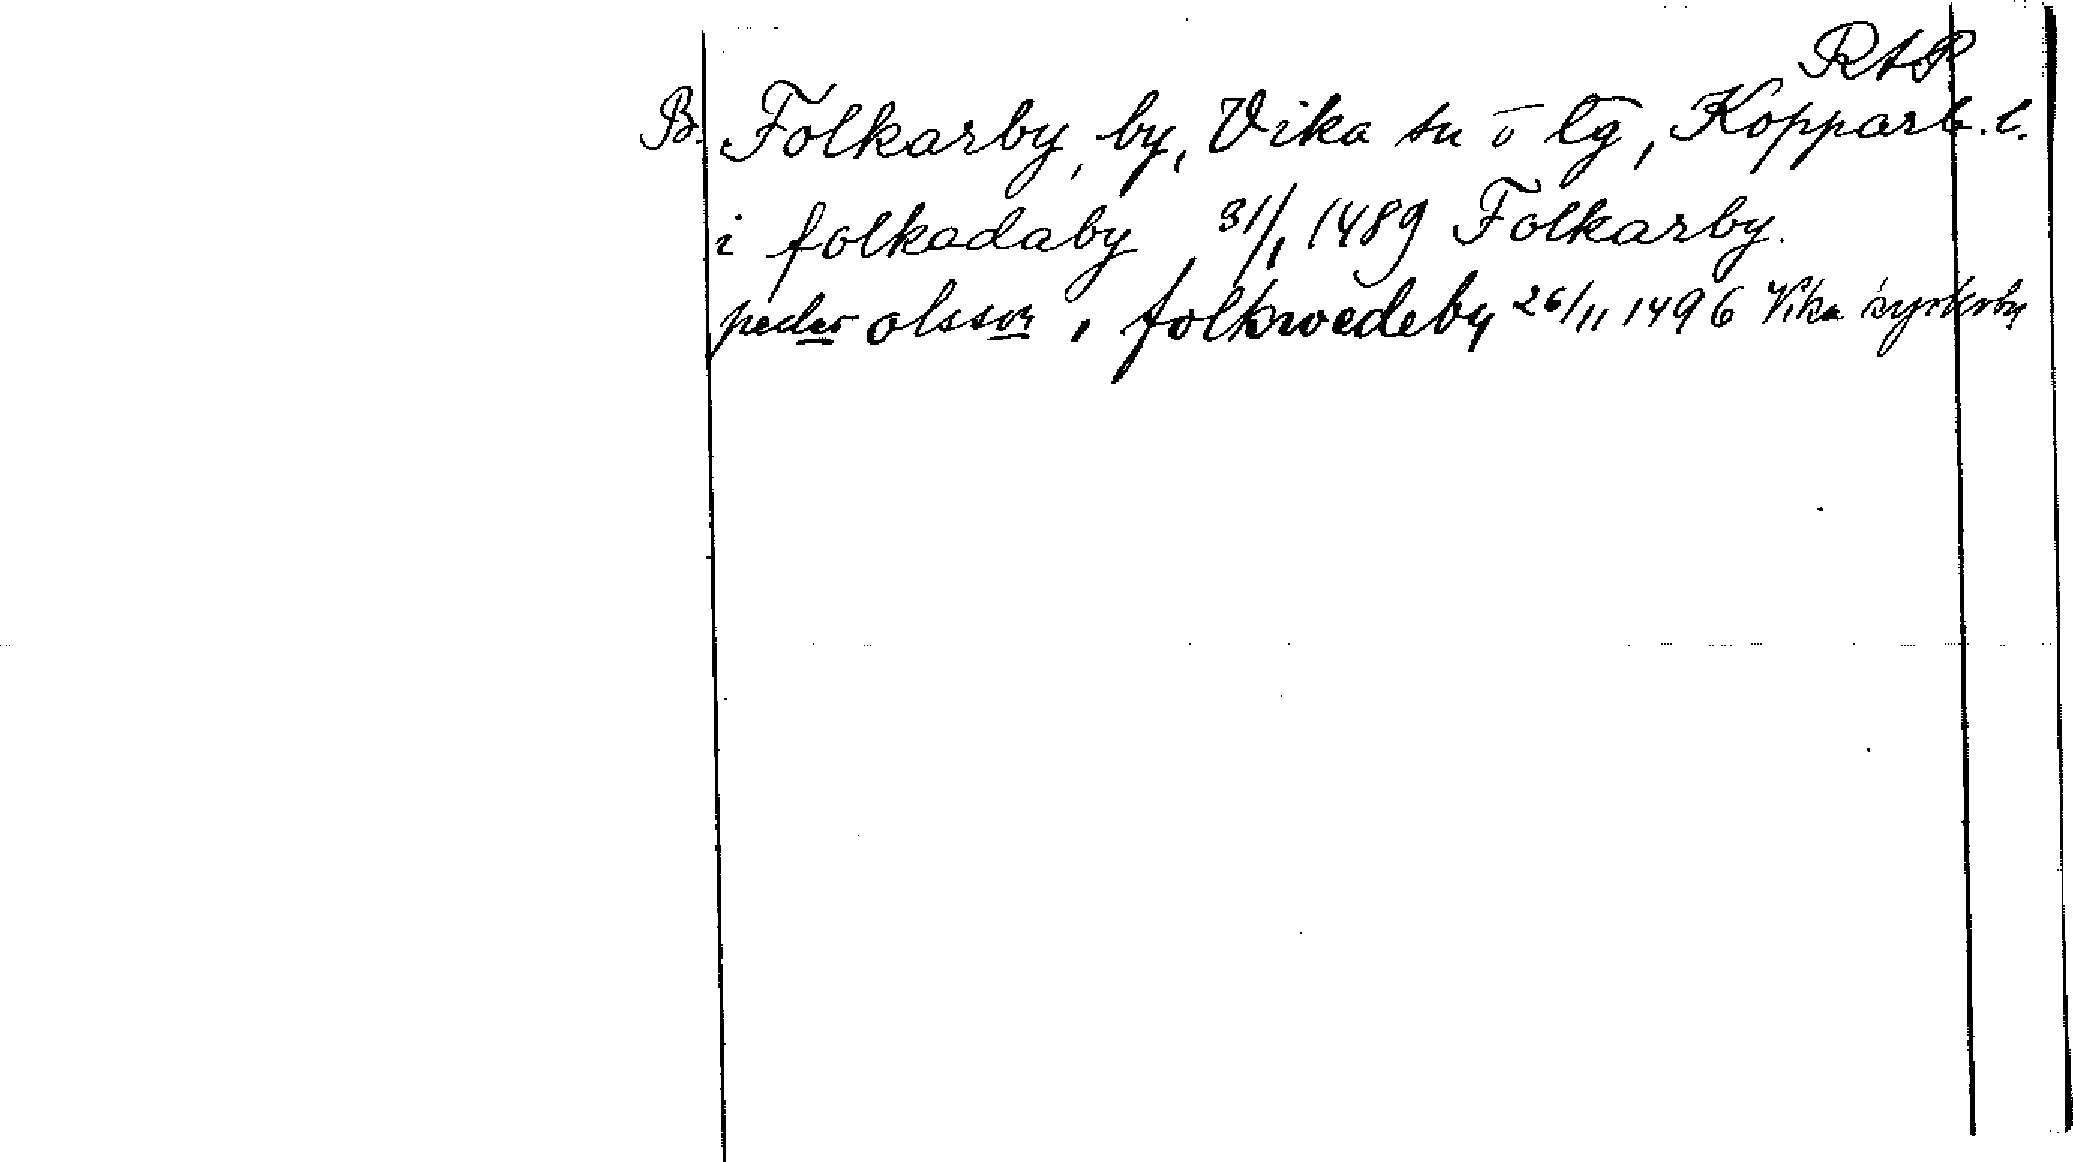 RAP
B. Folkarby, by, Vika sn o lg, Kopparb. l.
i folkadaby 31/1 1489 Folkarby.
peder olsson i folkwedeby 26/11 1496 Vika kyrkorby